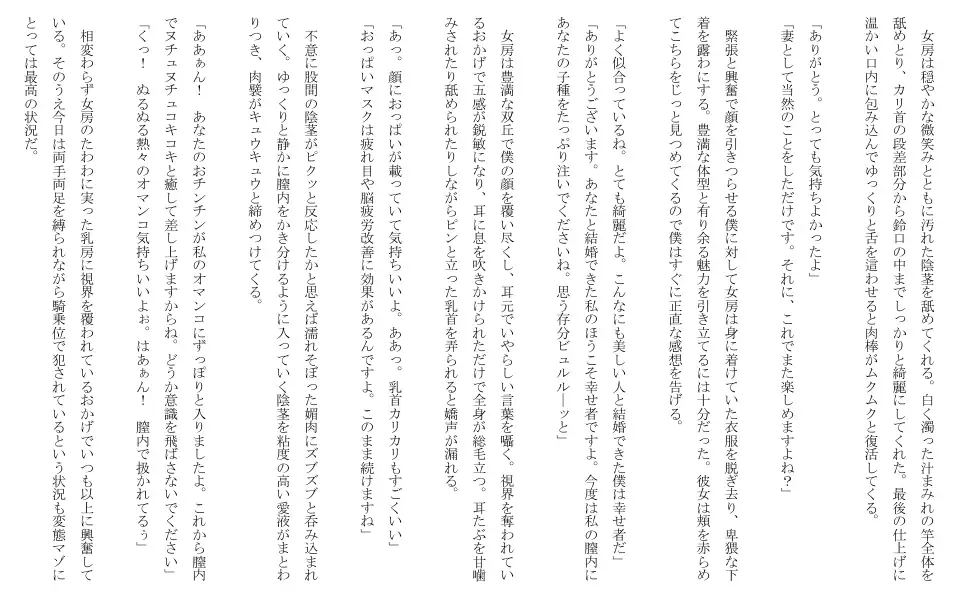 女房は穏やかな微笑みとともに汚れた陰茎を舐めてくれる。白く濁った汁まみれの竿全体を
舐めとり、カリ首の段差部分から鈴口の中までしっかりと綺麗にしてくれた。最後の仕上げに
温かい口内に包み込んでゆっくりと舌を這わせると肉棒がムクムクと復活してくる。
「ありがとう。とっても気持ちよかったよ」
「妻として当然のことをしただけです。それに、これでまた楽しめますよね？」
　緊張と興奮で顔を引きつらせる僕に対して女房は身に着けていた衣服を脱ぎ去り、卑猥な下
着を露わにする。豊満な体型と有り余る魅力を引き立てるには十分だった。彼女は頬を赤らめ
てこちらをじっと見つめてくるので僕はすぐに正直な感想を告げる。
「よく似合っているね。とても綺麗だよ。こんなにも美しい人と結婚できた僕は幸せ者だ」
「ありがとうございます。あなたと結婚できた私のほうこそ幸せ者ですよ。今度は私の膣内に
あなたの子種をたっぷり注いでくださいね。思う存分ビュルル―ッと」
　女房は豊満な双丘で僕の顔を覆い尽くし、耳元でいやらしい言葉を囁く。視界を奪われてい
るおかげで五感が鋭敏になり、耳に息を吹きかけられただけで全身が総毛立つ。耳たぶを甘噛
みされたり舐められたりしながらピンと立った乳首を弄られると嬌声が漏れる。
「あっ。顔におっぱいが載っていて気持ちいいよ。ああっ。乳首カリカリもすごくいい」
「おっぱいマスクは疲れ目や脳疲労改善に効果があるんですよ。このまま続けますね」
　不意に股間の陰茎がピクッと反応したかと思えば濡れそぼった媚肉にズブズブと呑み込まれ
ていく。ゆっくりと静かに膣内をかき分けるように入っていく陰茎を粘度の高い愛液がまとわ
りつき、肉襞がキュウキュウと締めつけてくる。
「ああぁん！　あなたのおチンチンが私のオマンコにずっぽりと入りましたよ。これから膣内
でヌチュヌチュコキコキと癒して差し上げますからね。どうか意識を飛ばさないでください」
「くっ！　ぬるぬる熱々のオマンコ気持ちいいよぉ。はあぁん！　膣内で扱かれてるぅ」
　相変わらず女房のたわわに実った乳房に視界を覆われているおかげでいつも以上に興奮して
いる。そのうえ今日は両手両足を縛られながら騎乗位で犯されているという状況も変態マゾに
とっては最高の状況だ。